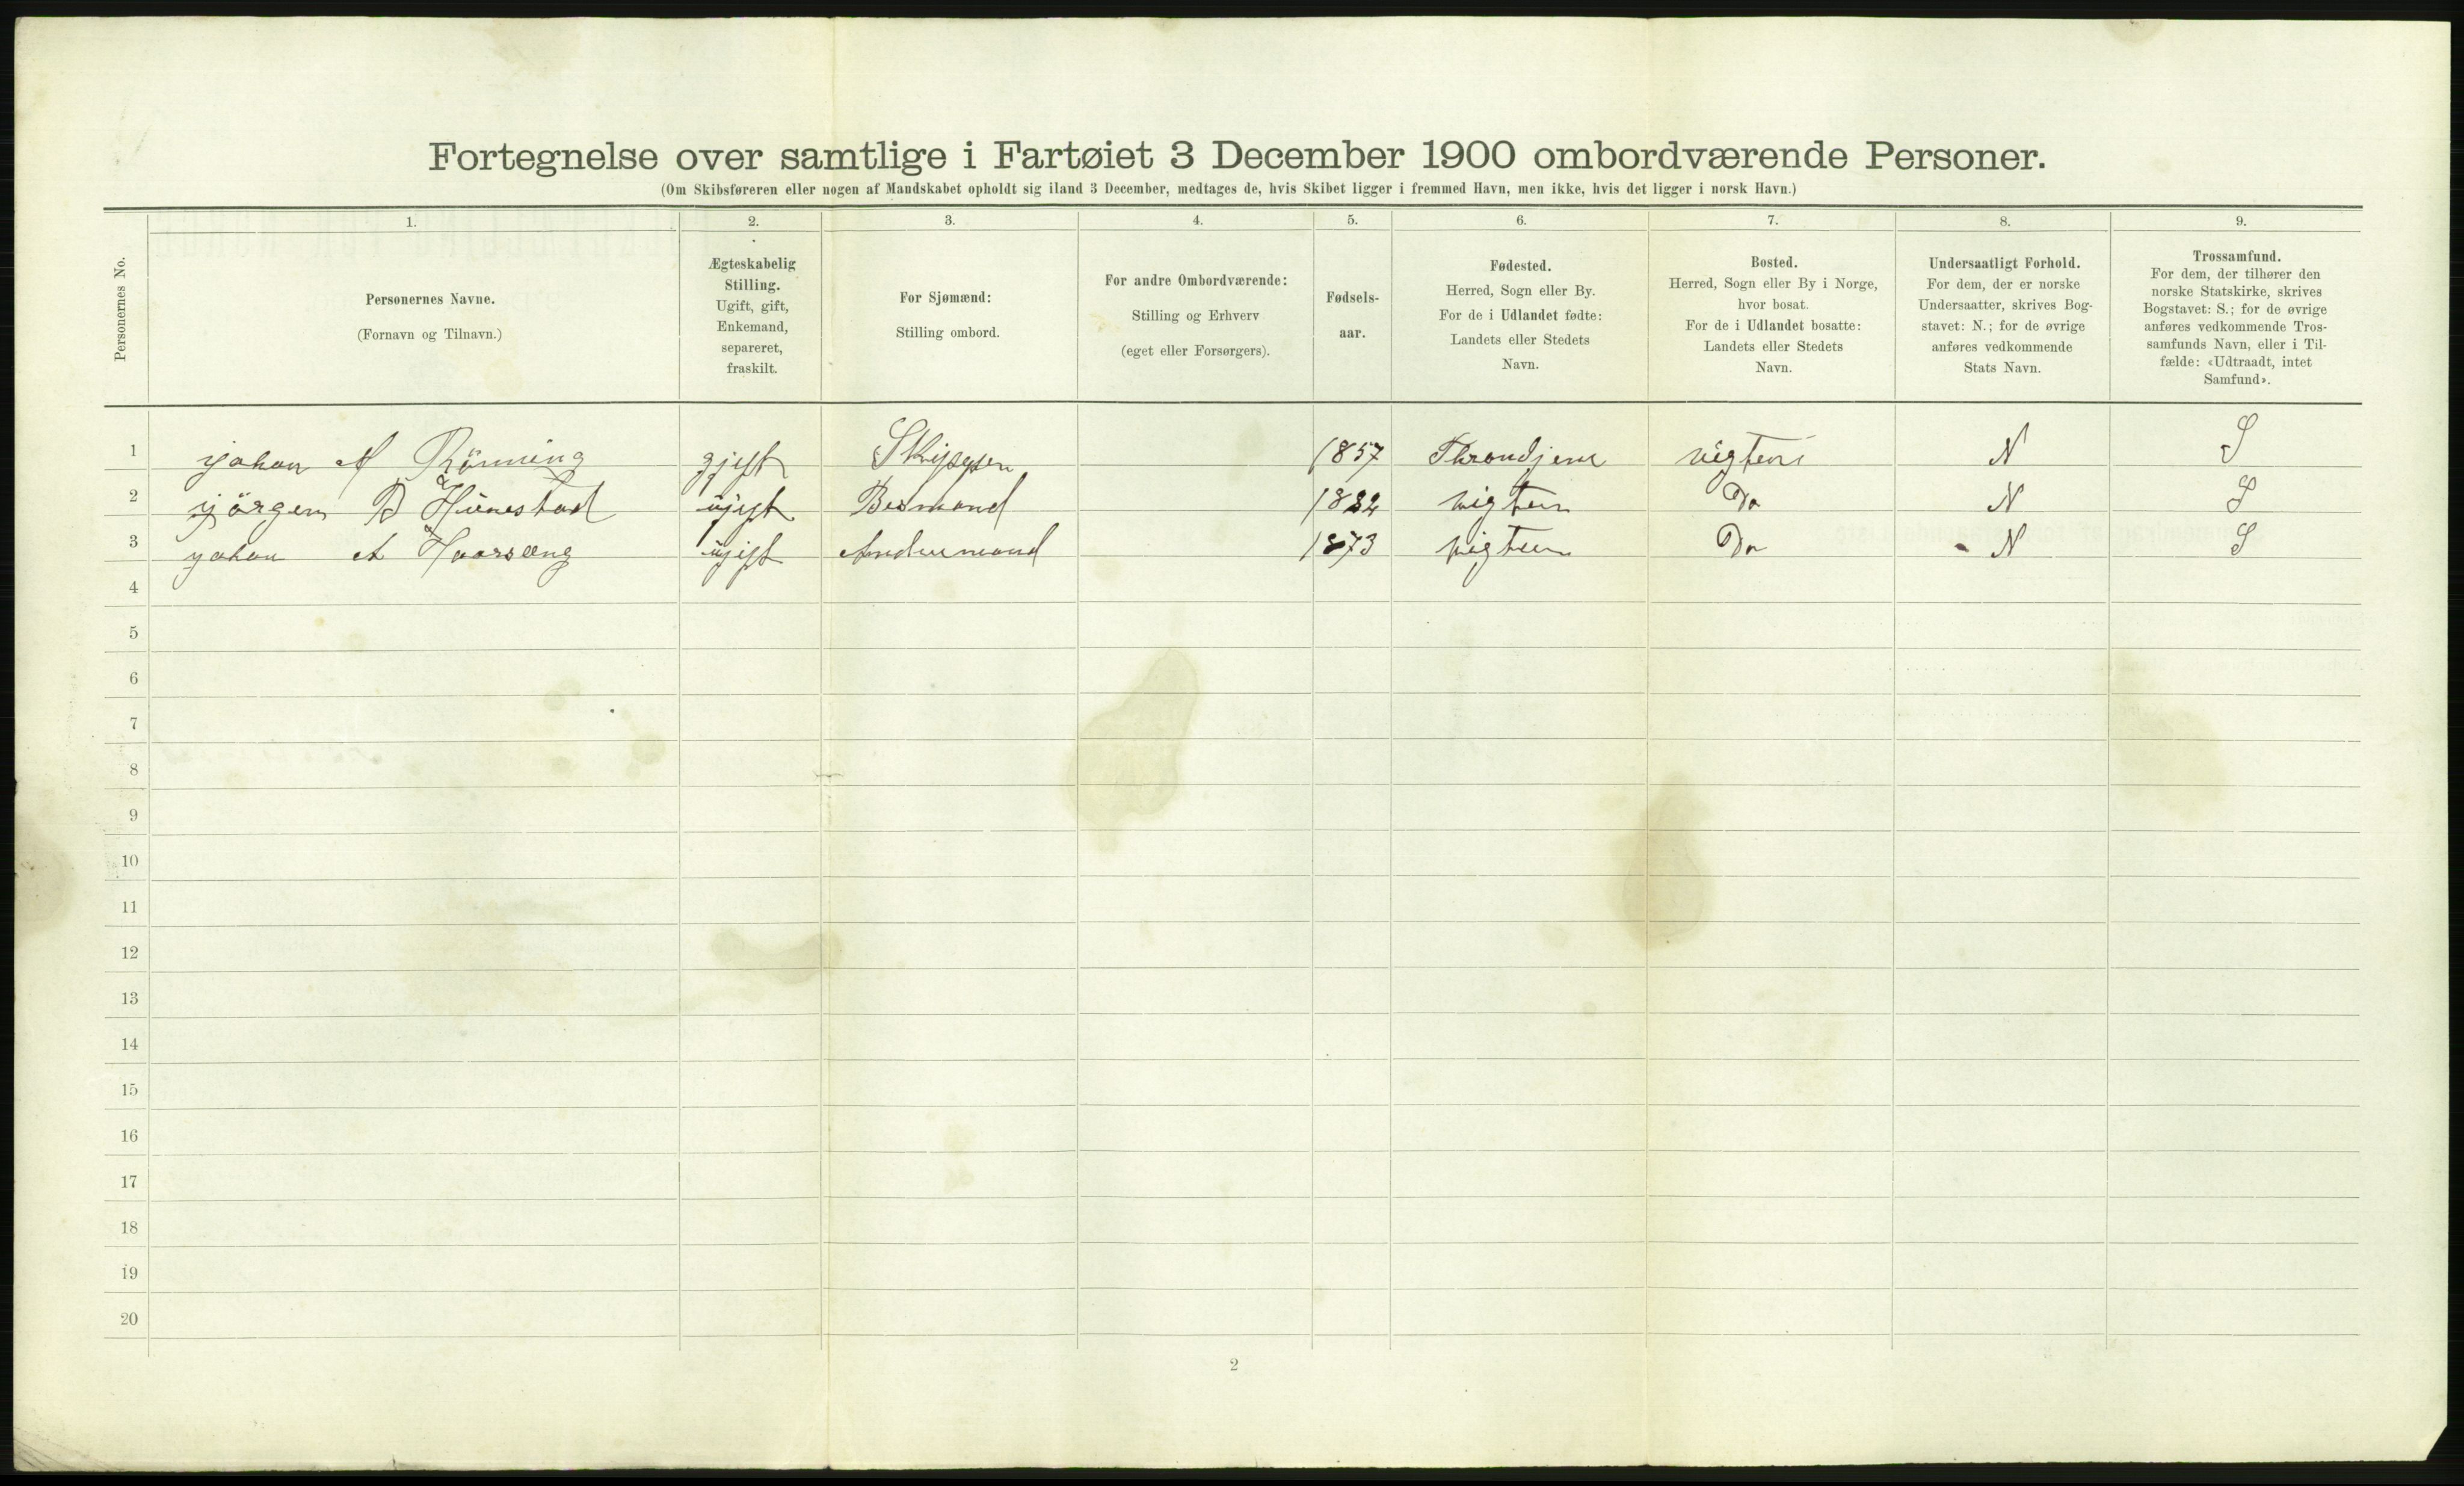 Fortegnelse over samtlige i Fartøiet 3 December 1900 ombordværende Personer.
(Om Skibsføreren eller nogen af Mandskabet opholdt sig iland 3 December, medtages de, hvis Skibet ligger i fremmed Havn, men ikke, hvis det ligger i norsk Havn.)
Personernes No.
1. 2. 3. 4. 5. 6. 7. 8. 9.
Personernes Navne.
(Fornavn og Tilnavn.)
Ægteskabelig
Stilling.
Ugift, gift,
Enkemand,
separeret,
fraskilt.
For Sjømænd:
Stilling ombord.
For andre Ombordværende:
Stilling og Erhverv
(eget eller Forsørgers).
Fødsels-
aar.
Fødested.
Herred, Sogn eller By.
For de i Udlandet fødte:
Landets eller Stedets
Navn.
Bosted.
Herred, Sogn eller By i Norge,
hvor bosat.
For de i Udlandet bosatte:
Landets eller Stedets
Navn.
Undersaatligt Forhold.
For dem, der er norske
Undersaatter, skrives Bog-
stavet: N.; for de øvrige
anføres vedkommende
Stats Navn.
Trossamfund.
For dem, der tilhører den
norske Statskirke, skrives
Bogstavet: S.; for de øvrige
anføres vedkommende Tros-
samfunds Navn, eller i Til-
fælde: «Udtraadt, intet
Samfund».
1 johan Rönning gjift Skipper 1857 Throndjem vigten N S
2 jörgen B ugift Besmand vigten Do N S
3 johan A ugift 1873 vigten Do N S
4
5
6
7
8
9
10
11
12
13
14
15
16
17
18
19
20
2